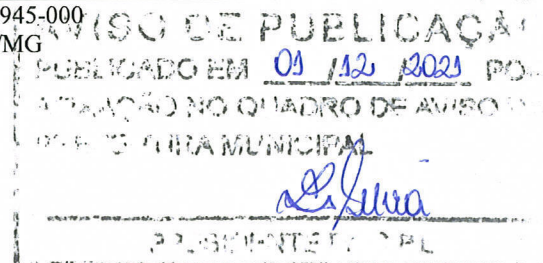 945-000
/MG
AVISO DE PUBLICAÇÃ
PUBLICADO EM 01 /12 /2021 PO
AFIXAÇÃO NO QUADRO DE AVISO
MUNICIPAL